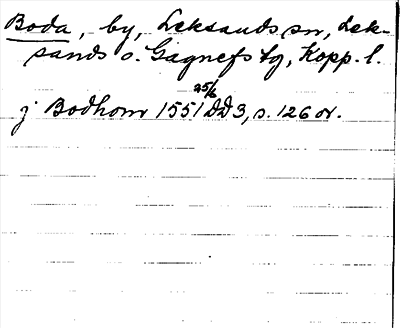 Boda, by, Leksands sn, Lek-
sands o. Gagnefs tg, Kopp. l.
25/6
j Bodhom 1551 DD 3, s. 126 or.